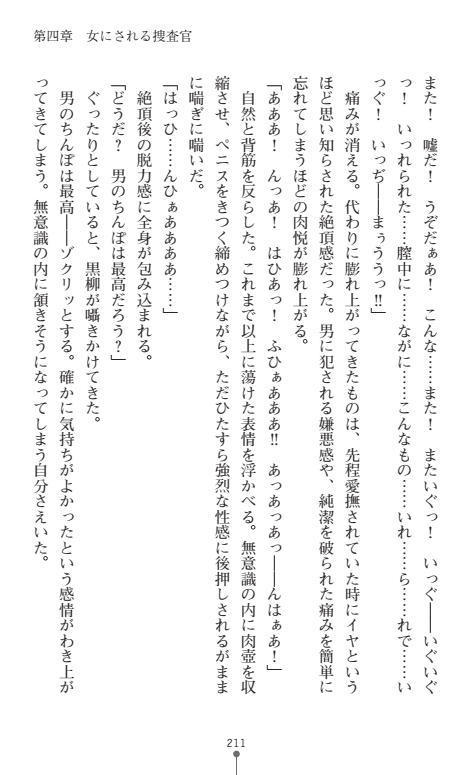 第四章　女にされる捜査官
また！　嘘だ！　うぞだぁあ！　こんな……また！　またいぐっ！　いっぐ――いぐいぐ
っ！　いっれられた……膣中に……ながに……こんなもの……いれ……ら……れで……い
っぐ！　いっぢ――まぅううっ!!」
　痛みが消える。代わりに膨れ上がってきたものは、先程愛撫されていた時にイヤという
ほど思い知らされた絶頂感だった。男に犯される嫌悪感や、純潔を破られた痛みを簡単に
忘れてしまうほどの肉悦が膨れ上がる。
「あああ！　んっあ！　はひあっ！　ふひぁああ!!　あっあっあっ――んはぁあ！」
　自然と背筋を反らした。これまで以上に蕩けた表情を浮かべる。無意識の内に肉壺を収
縮させ、ペニスをきつく締めつけながら、ただひたすら強烈な性感に後押しされるがまま
に喘ぎに喘いだ。
「はっひ……んひぁああああ……」
　絶頂後の脱力感に全身が包み込まれる。
「どうだ？　男のちんぽは最高だろう？」
　ぐったりとしていると、黒柳が囁きかけてきた。
　男のちんぽは最高――ゾクリッとする。確かに気持ちがよかったという感情がわき上が
ってきてしまう。無意識の内に頷きそうになってしまう自分さえいた。
211